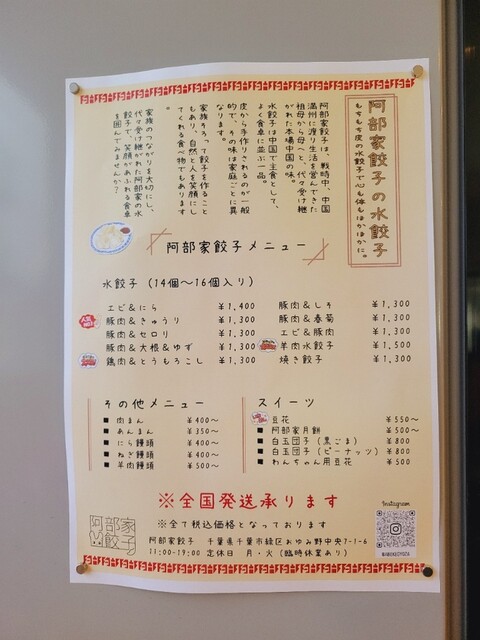 阿部家餃子の水餃子
もちもち皮の水餃子で心も体もほかほかに。
阿部家餃子は、戦時中、中国
満州に渡り生活を営んできた
祖母から母へと、代々受け継
がれた本場中国の味。
水餃子は中国で主食として、
よく食卓に並ぶ一品。
皮から手作りされるのが一般
的で、その味は家庭ごとに異
なります。
家族そろって餃子を作ること
もあり、自然と人を笑顔にし
てくれる食べ物でもあります
。
家族のつながりを大切にし、
代々受け継がれた阿部家の水
餃子で、笑顔があふれる食卓
を囲んでみませんか?
阿部家餃子メニュー
水餃子(14個〜16個入り)
エビ&にら ¥1,400
人気NO1
豚肉&きゅうり ¥1,300
豚肉&セロリ ¥1,300
豚肉&大根&ゆず ¥1,300
鶏肉&とうもろこし ¥1,300
豚肉&しそ ¥1,300
豚肉&春菊 ¥1,300
エビ&豚肉 ¥1,300
羊肉水餃子 ¥1,500
焼き餃子 ¥1,300
その他メニュー
■ 肉まん ¥400〜
■ あんまん ¥350〜
■ にら饅頭 ¥400〜
■ ねぎ饅頭 ¥400〜
■ 羊肉饅頭 ¥500〜
スイーツ
豆花 ¥550〜
■ 阿部家月餅 ¥500〜
■ 白玉団子(黒ごま) ¥800
■ 白玉団子(ピーナッツ) ¥800
■ わんちゃん用豆花 ¥500
※全国発送承ります
※全て税込価格となっております
阿部家餃子
阿部家餃子 千葉県千葉市緑区おゆみ野中央7-1-6
11:00-19:00 定休日 月・火(臨時休業あり)
Instagram
@ABEKEGYOZA